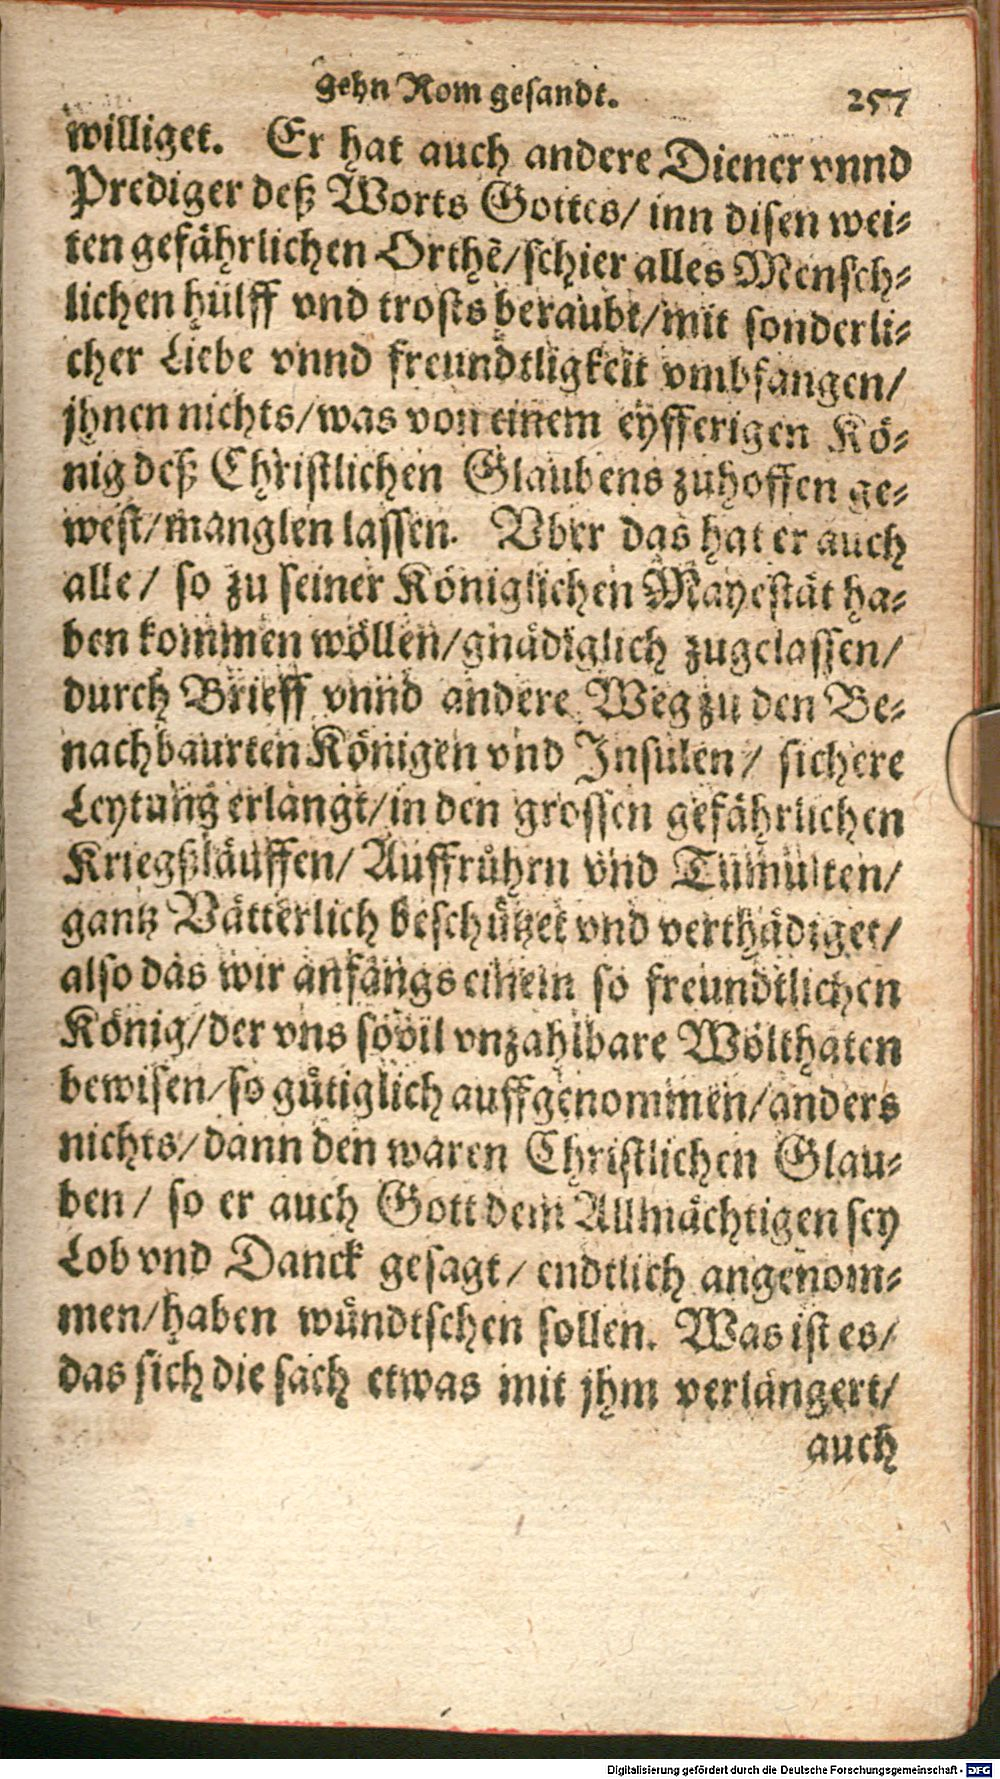 gehn Rom gesandt. 257
williget. Er hat auch andere Diener vnnd
Prediger deß Worts Gottes/ inn disen wei-
ten gefährlichen Orthē/schier alles Mensch-
lichen hülff vnd trosts beraubt/mit sonderli-
cher Liebe vnnd freundtligkeit vmbfangen/
jhnen nichts/was von einem eyfferigen Kö-
nig deß Christlichen Glaubens zuhoffen ge-
west/manglen lassen. Vber das hat er auch
alle/ so zu seiner Königlichen Mayestät ha-
ben kommen wöllen/gnädiglich zugelassen/
durch Brieff vnnd andere Weg zu den Be-
nachbaurten Königen vnd Insulen/ sichere
Leytung erlangt/in den grossen gefährlichen
Kriegßläuffen/ Auffrührn vnd Tumulten/
gantz Vätterlich beschützet vnd verthädiget/
also das wir anfangs einem so freundtlichen
König/der vns sovil vnzahlbare Wolthaten
bewisen/so gütiglich auffgenommen/anders
nichts/dann den waren Christlichen Glau-
ben/ so er auch Gott dem Allmächtigen sey
Lob vnd Danck gesagt/ endtlich angenom-
men/haben wündtschen sollen. Was ist es/
das sich die sach etwas mit jhm verlängert/
auch
Digitalisierung gefördert durch die Deutsche Forschungsgemeinschaft - DFG